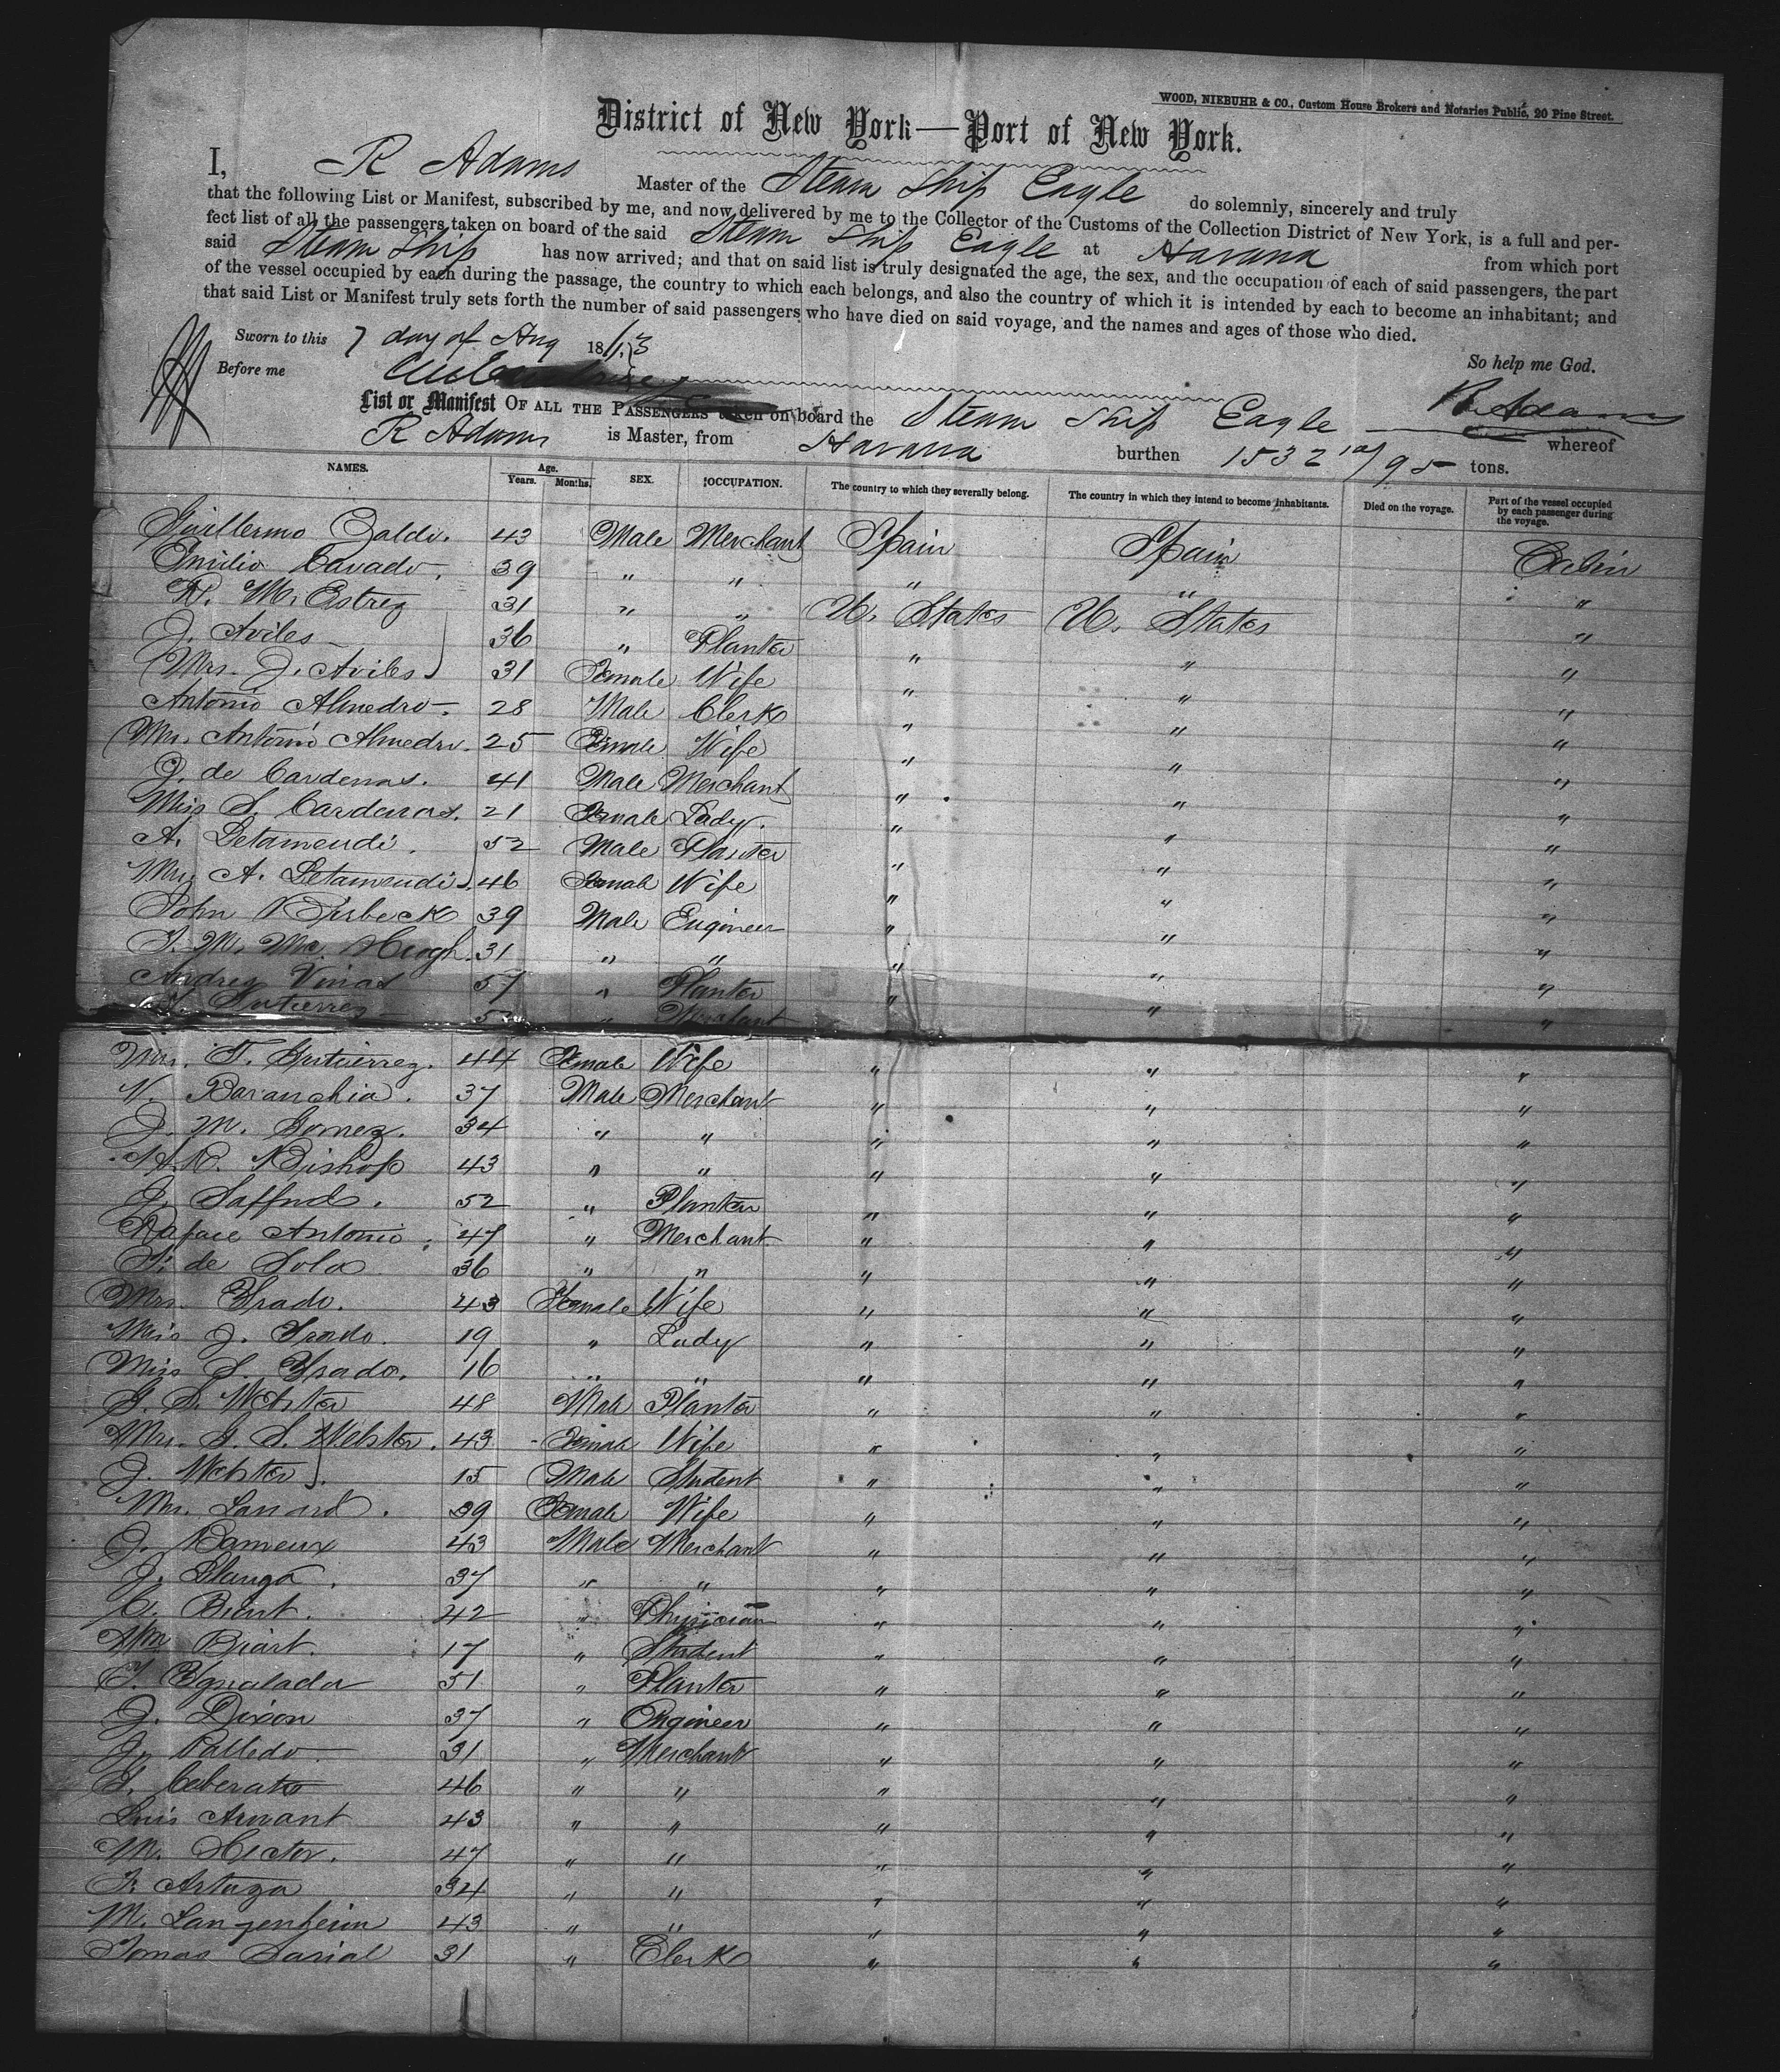 WOOD, NIEBUHR & CO., Custom House Brokers and Notaries Public, 20 Pine Street.
District of New York—Port of New York.
I, R Adams Master of the Steam Ship Eagle do solemnly, sincerely and truly
that the following List or Manifest, subscribed by me, and now delivered by me to the Collector of the Customs of the Collection District of New York, is a full and per-
fect list of all the passengers taken on board of the said Steam Ship Eagle at Havana from which port
said Steam Ship has now arrived; and that on said list is truly designated the age, the sex, and the occupation of each of said passengers, the part
of the vessel occupied by each during the passage, the country to which each belongs, and also the country of which it is intended by each to become an inhabitant; and
that said List or Manifest truly sets forth the number of said passengers who have died on said voyage, and the names and ages of those who died.
Sworn to this 7 day of Aug 18 3 So help me God.
Before me R Adams
List or Manifest OF ALL THE PASSENGERS taken on board the Steam Ship Eagle whereof
R Adams is Master, from Havana burthen 1532 10/95 tons.
NAMES. Age. Years. Months. SEX. OCCUPATION. The country to which they severally belong. The country in which they intend to become inhabitants. Died on the voyage. Part of the vessel occupied by each passenger during the voyage.
Guillermo Zaldo. 43 Male Merchant Spain Spain Cabin
Emilio Cavado. 39 " " " " "
R. M. Estrez 31 " " U. States U. States "
J. Aviles 36 " Planter " " "
Mrs. J. Aviles 31 Female Wife " " "
Antonio Almedro. 28 Male Clerk " " "
Mrs. Antonio Almedro. 25 Female Wife " " "
J. de Cardenas. 41 Male Merchant " " "
Miss S. Cardenas. 21 Female Lady. " " "
A. Letamendi. 52 Male Planter " " "
Mrs. A. Letamendi 46 Female Wife " " "
John Birbeck 39 Male Engineer " " "
J. M. Mc. Hugh. 31 " " " " "
Andrez Vinas 57 " Planter " " "
Gutierrez " Merchant " " "
Mrs. F. Gutierrez. 44 Female Wife " " "
V. Baranchia. 37 Male Merchant " " "
J. M. Gomez. 34 " " " " "
Bishop 43 " " " " "
J. 52 " Planter " " "
Antonio 47 " Merchant " " "
F. de Sola 36 " " " " "
Mrs. Prado. 43 Female Wife " " "
Miss J. Prado. 19 " Lady " " "
Miss S. Prado. 16 " " " " "
G. S. Webster 48 Male Planter " " "
Mrs. G. S. Webster. 43 Female Wife " " "
J. Webster. 15 Male Student " " "
Mrs. 39 Female Wife " " "
J. 43 Male Merchant " " "
J. Llanga. 37 " " " " "
C. Biart. 42 " Physician " " "
Wm Biart. 17 " Student " " "
Y. Ygualada 51 " Planter " " "
J. Dixon 37 " Engineer " " "
J. Palledo 31 " Merchant " " "
46 " " " " "
Luis Armant 43 " " " " "
M. Hector. 47 " " " " "
F. Artuza 34 " " " " "
M. Langenheim 43 " " " " "
Tomas Sarial 31 " Clerk " " "